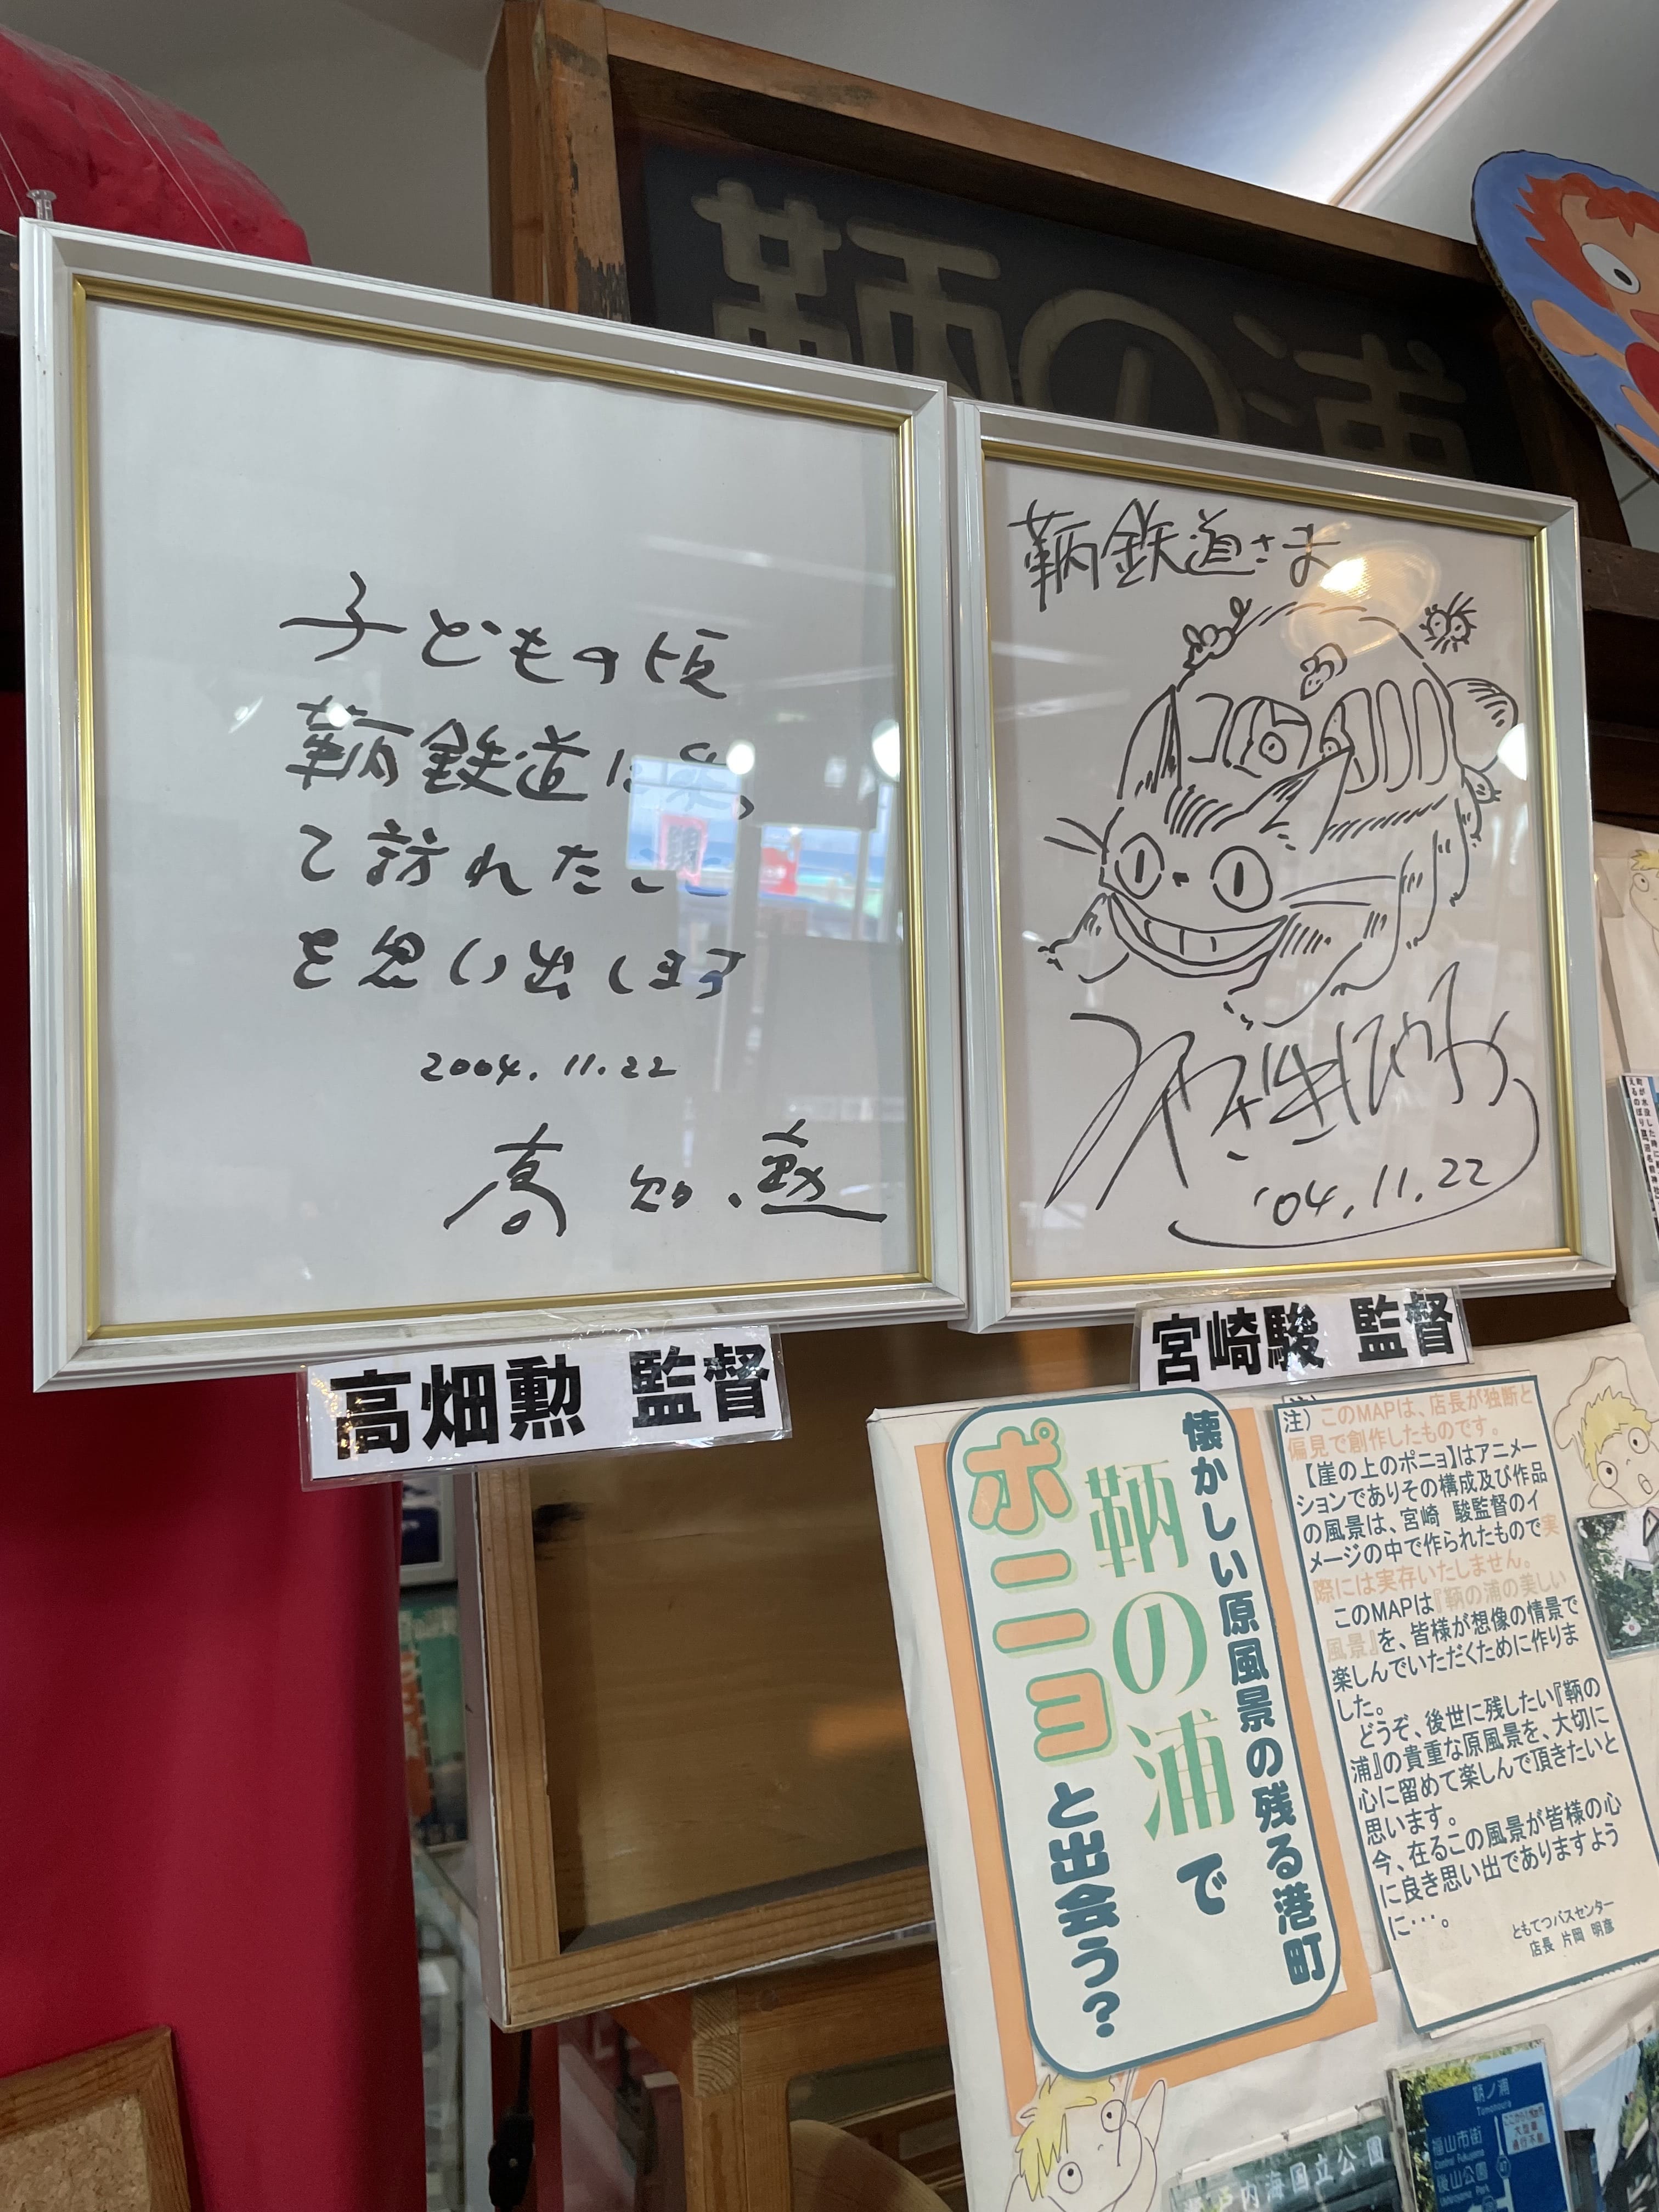 鞆の浦
子どもの頃
鞆鉄道に乗っ
て訪れたこと
を思い出します
2004.11.22
高畑勲
高畑勲 監督
鞆鉄道さま
みやざきはやお
'04.11.22
宮崎駿 監督
懐かしい原風景の残る港町
鞆の浦で
ポニョと出会う?
注)このMAPは、店長が独断と
偏見で創作したものです。
【崖の上のポニョ】はアニメー
ションでありその構成及び作品
の風景は、宮崎 駿監督のイ
メージの中で作られたもので実
際には実存いたしません。
このMAPは『鞆の浦の美しい
風景』を、皆様が想像の情景で
楽しんでいただくために作りま
した。
どうぞ、後世に残したい『鞆の
浦』の貴重な原風景を、大切に
心に留めて楽しんで頂きたいと
思います。
今、在るこの風景が皆様の心
に良き思い出でありますよう
に・・・。
ともてつバスセンター
店長 片岡 明彦
鞆ノ浦
Tomonoura
福山市街
Central Fukuyama
後山公園
Ushiroyama Park
瀬戸内海国立公園